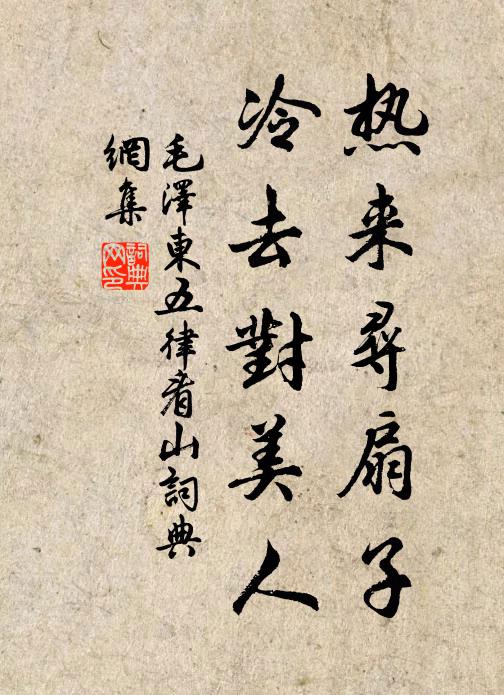 热来尋扇子
冷去對美人
毛澤東五律看山詞典
網集
詞典
网印